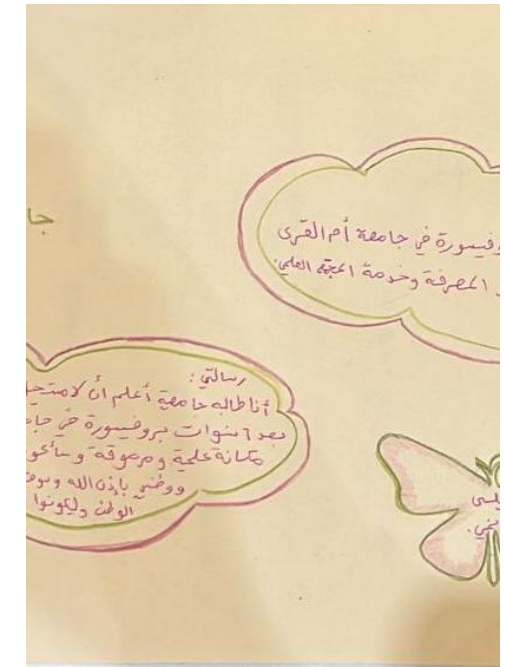 جا
وفيسورة في جامعة أم القرى
المعرفة وخدمة المجتمع العلمي.
رسالتي:
أنا طالبه جامعية أعلم أن لامستحيل
بعد ٦ سنوات بروفيسورة في جام
مكانة علمية ومرموقة وسأكو
ووطني بإذن الله وسوف
الوطن وليكونوا